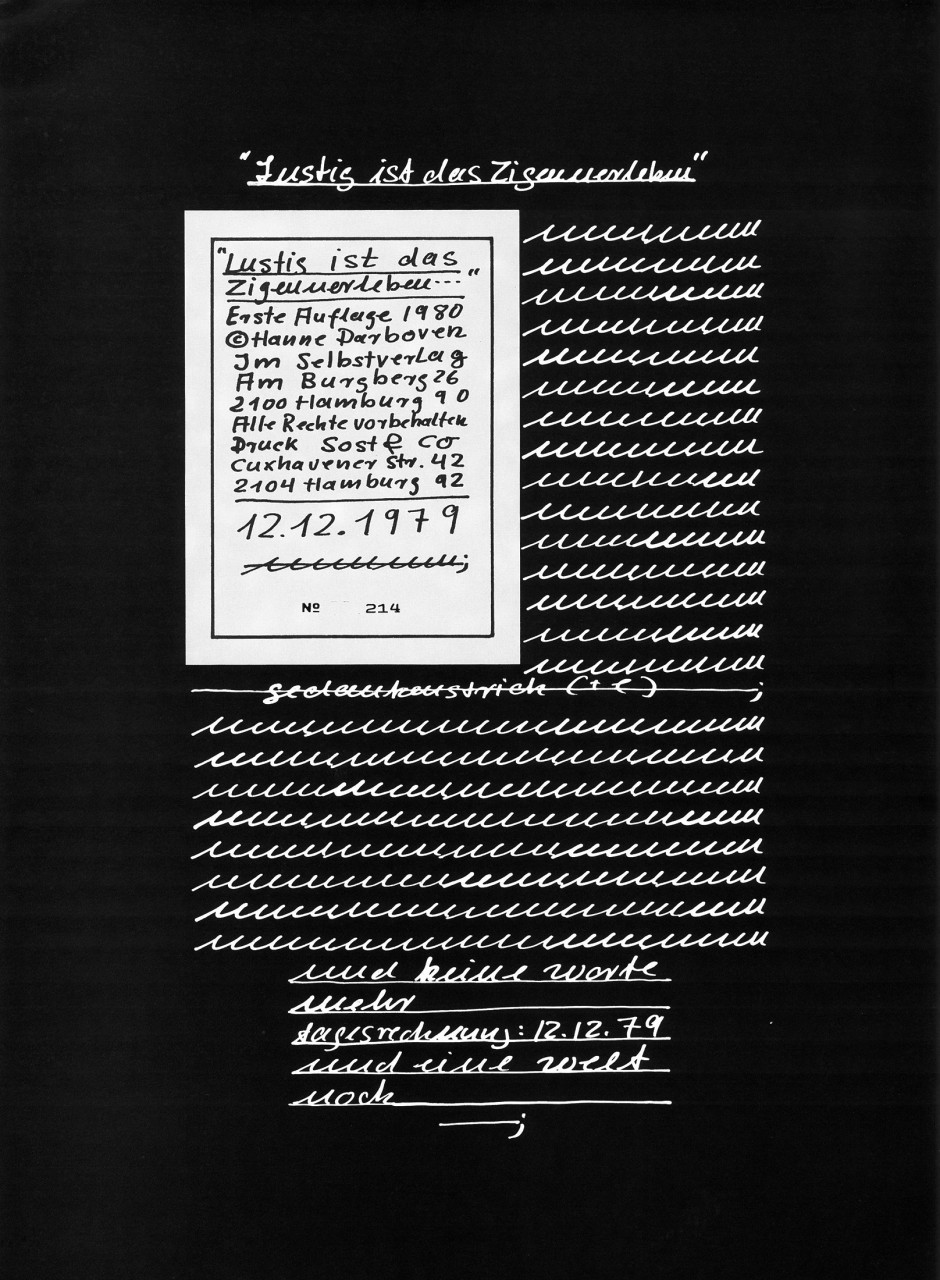 "Lustig ist das Zigeunerleben"
"Lustig ist das
Zigeunerleben..."
Erste Auflage 1980
©Hanne Darboven
Im Selbstverlag
Am Burgberg 26
2100 Hamburg 90
Alle Rechte vorbehalten
Druck Sost & Co
Cuxhavener Str. 42
2104 Hamburg 92
12.12.1979
Nº 214
gedankenstrich (+ e) ;
und keine worte
mehr
tagesrechnung: 12.12.79
und eine welt
noch
;